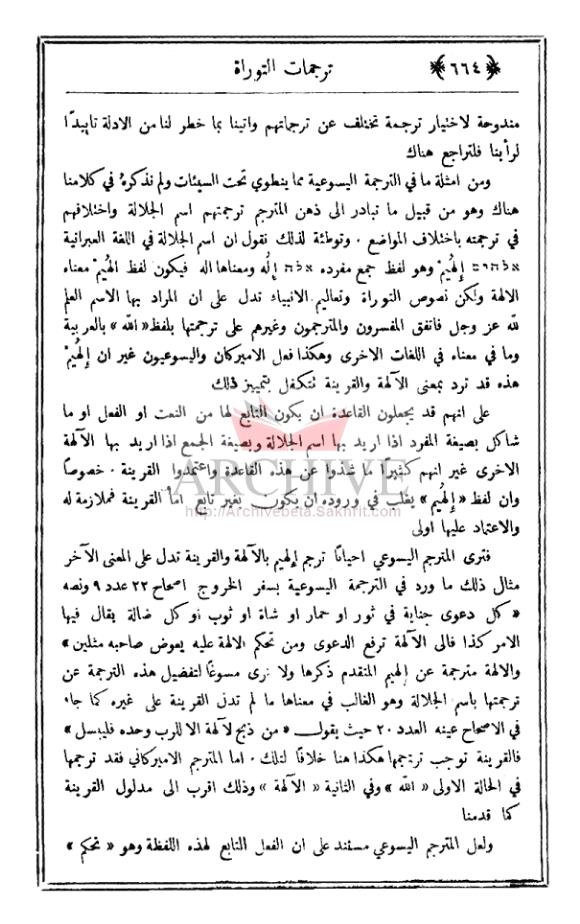 ﴿٦٦٤﴾ ترجمات التوراة
مندوحة لاختيار ترجمة تختلف عن ترجماتهم واتينا بما خطر لنا من الادلة تاييدًا
لرأينا فلتراجع هناك
ومن امثلة ما في الترجمة اليسوعية مما ينطوي تحت السيئات ولم نذكره في كلامنا
هناك وهو من قبيل ما تبادر الى ذهن المترجم ترجمتهم اسم الجلالة واختلافهم
في ترجمته باختلاف المواضع . وتوطئة لذلك نقول ان اسم الجلالة في اللغة العبرانية
אלהים إِلُهيمْ وهو لفظ جمع مفرده אלה إِلُه ومعناها اله فيكون لفظ الهيمْ معناه
الالهة ولكن نصوص التوراة وتعاليم الانبياء تدل على ان المراد بها الاسم العلم
لله عز وجل فاتفق المفسرون والمترجمون وغيرهم على ترجمتها بلفظ « الله » بالعربية
وما في معناه في اللغات الاخرى وهكذا فعل الاميركان واليسوعيون غير ان إِلُهيمْ
هذه قد ترد بمعنى الآلهة والقرينة تتكفل بتمييز ذلك
على انهم قد يجعلون القاعدة ان يكون التابع لها من النعت او الفعل او ما
شاكل بصيغة المفرد اذا اريد بها اسم الجلالة وبصيغة الجمع اذا اريد بها الآلهة
الاخرى غير انهم كثيرًا ما شذوا عن هذه القاعدة واعتمدوا القرينة . خصوصًا
وان لفظ « إِلُهيم » يغلب في وروده ان يكون بغير تابع اما القرينة فملازمة له
والاعتماد عليها اولى
فترى المترجم اليسوعي احيانًا ترجم إلهيم بالآلهة والقرينة تدل على المعنى الآخر
مثال ذلك ما ورد في الترجمة اليسوعية بسفر الخروج اصحاح ٢٢ عدد ٩ ونصه
« كل دعوى جناية في ثور او حمار او شاة او ثوب او كل ضالة يقال فيها
الامر كذا فالى الآلهة ترفع الدعوى ومن تحكم الالهة عليه يعوض صاحبه مثلين »
والالهة مترجمة عن إلهيم المتقدم ذكرها ولا نرى مسوغًا لتفضيل هذه الترجمة عن
ترجمتها باسم الجلالة وهو الغالب في معناها ما لم تدل القرينة على غيره كما جاء
في الاصحاح عينه العدد ٢٠ حيث يقول « من ذبح لآلهة الا للرب وحده فليبسل »
فالقرينة توجب ترجمتها هكذا هنا خلافًا لتلك . اما المترجم الاميركاني فقد ترجمها
في الحالة الاولى « الله » وفي الثانية « الآلهة » وذلك اقرب الى مدلول القرينة
كما قدمنا
ولعل المترجم اليسوعي مستند على ان الفعل التابع لهذه اللفظة وهو « تحكم »
ARCHIVE
http://Archivebeta.Sakhrit.com